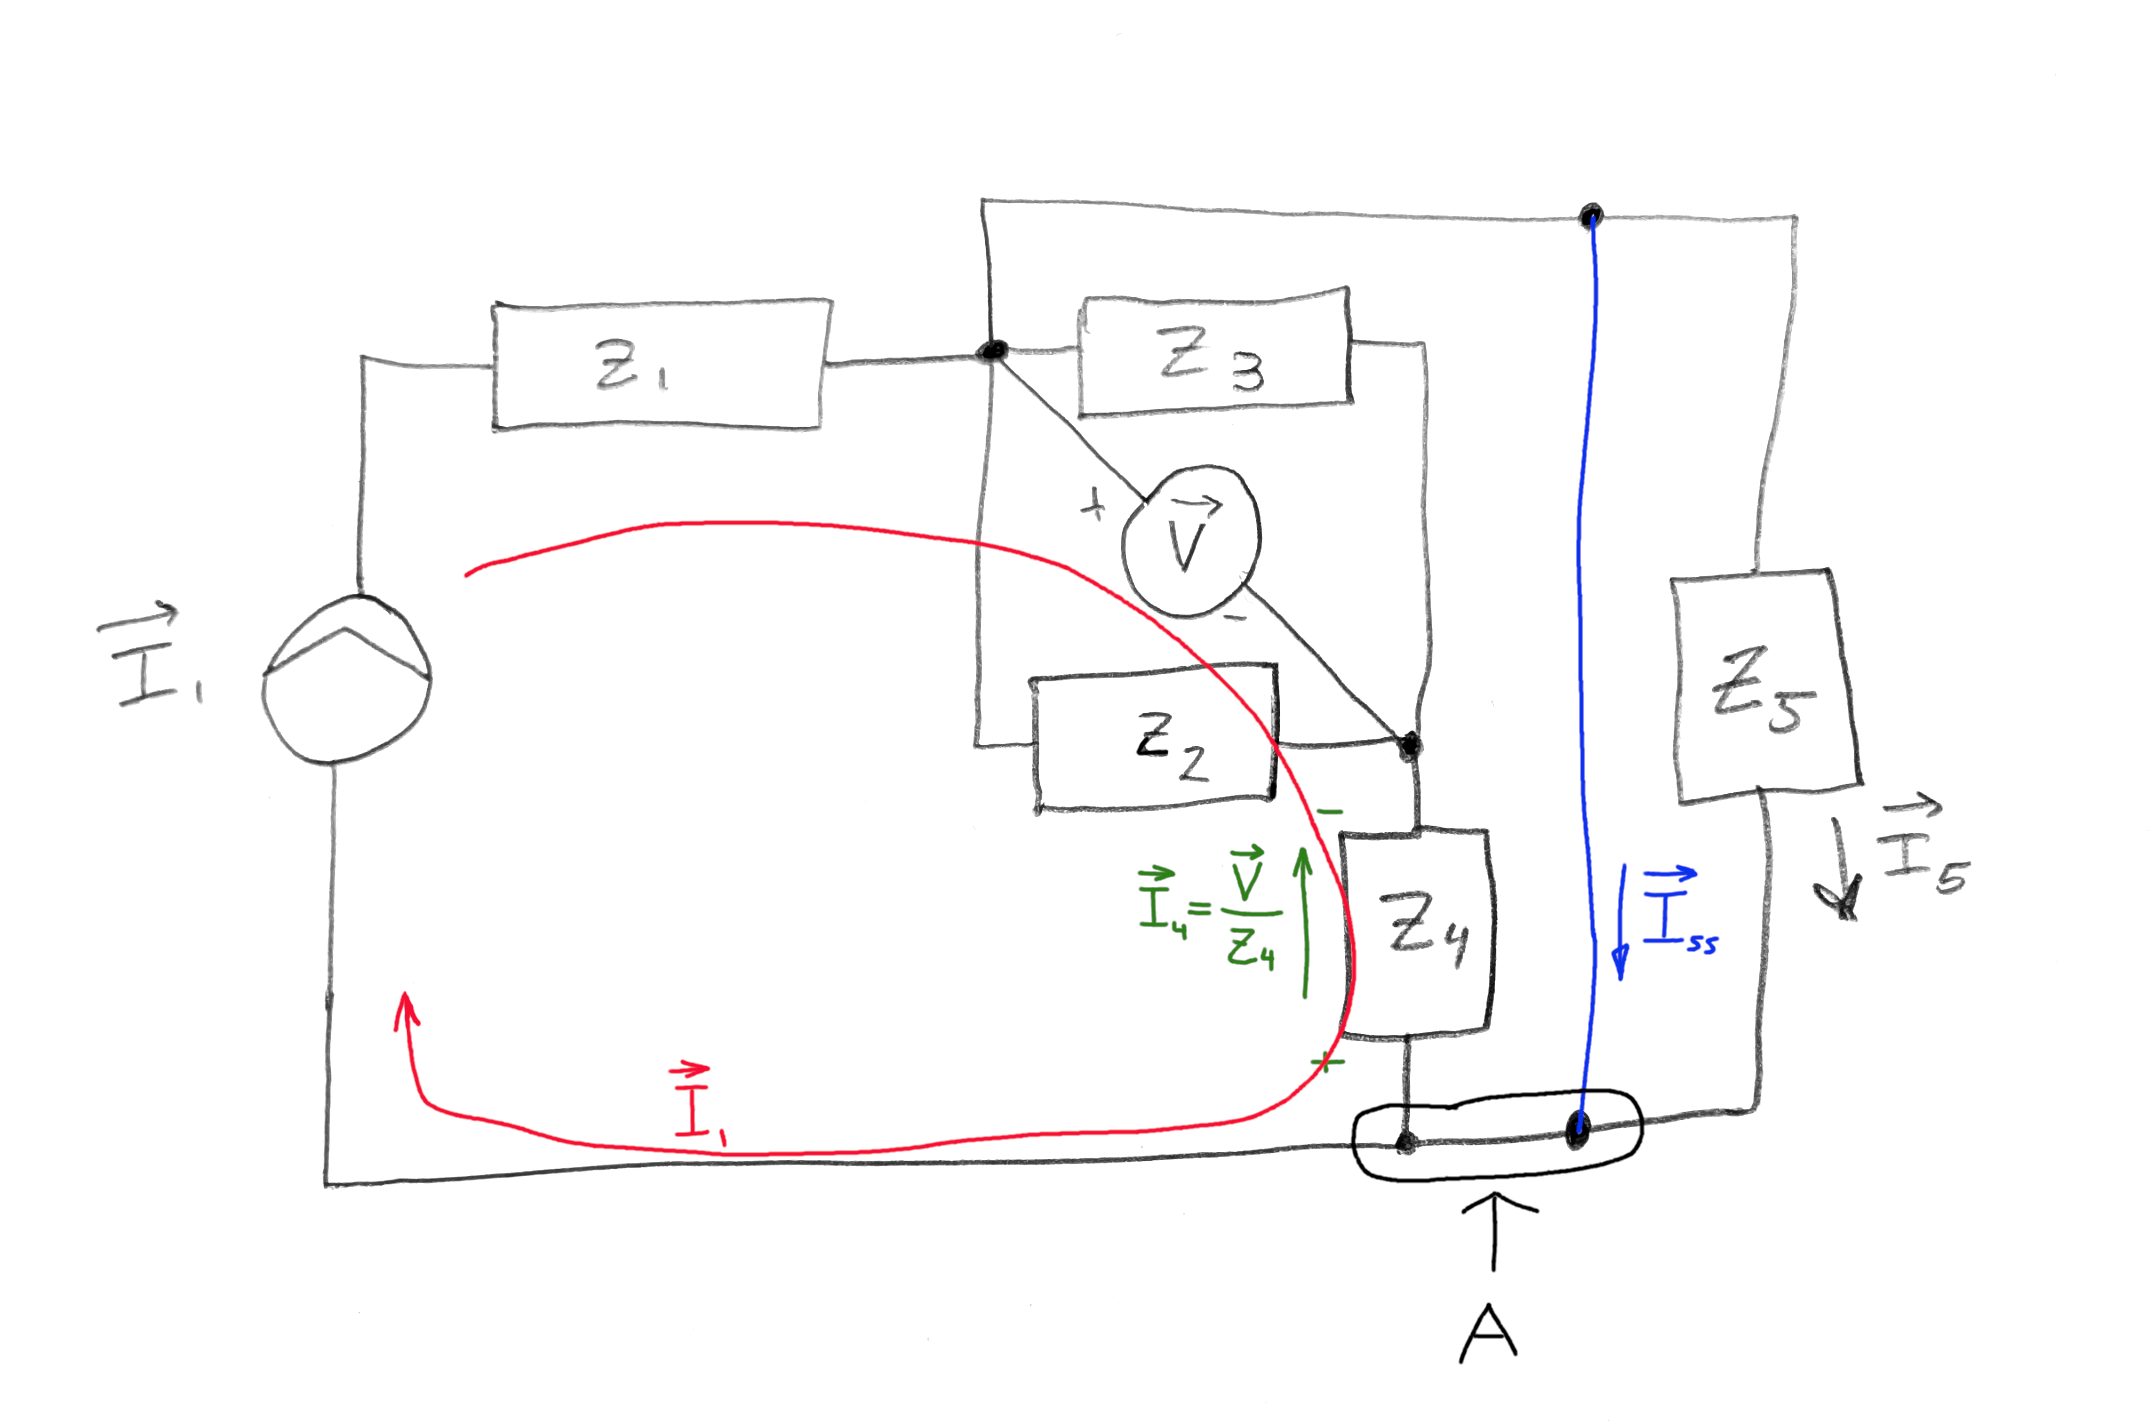 Z1
Z3
+
V
-
I1
Z2
Z5
-
I4 = V/Z4
Z4
I5
Iss
+
I1
A